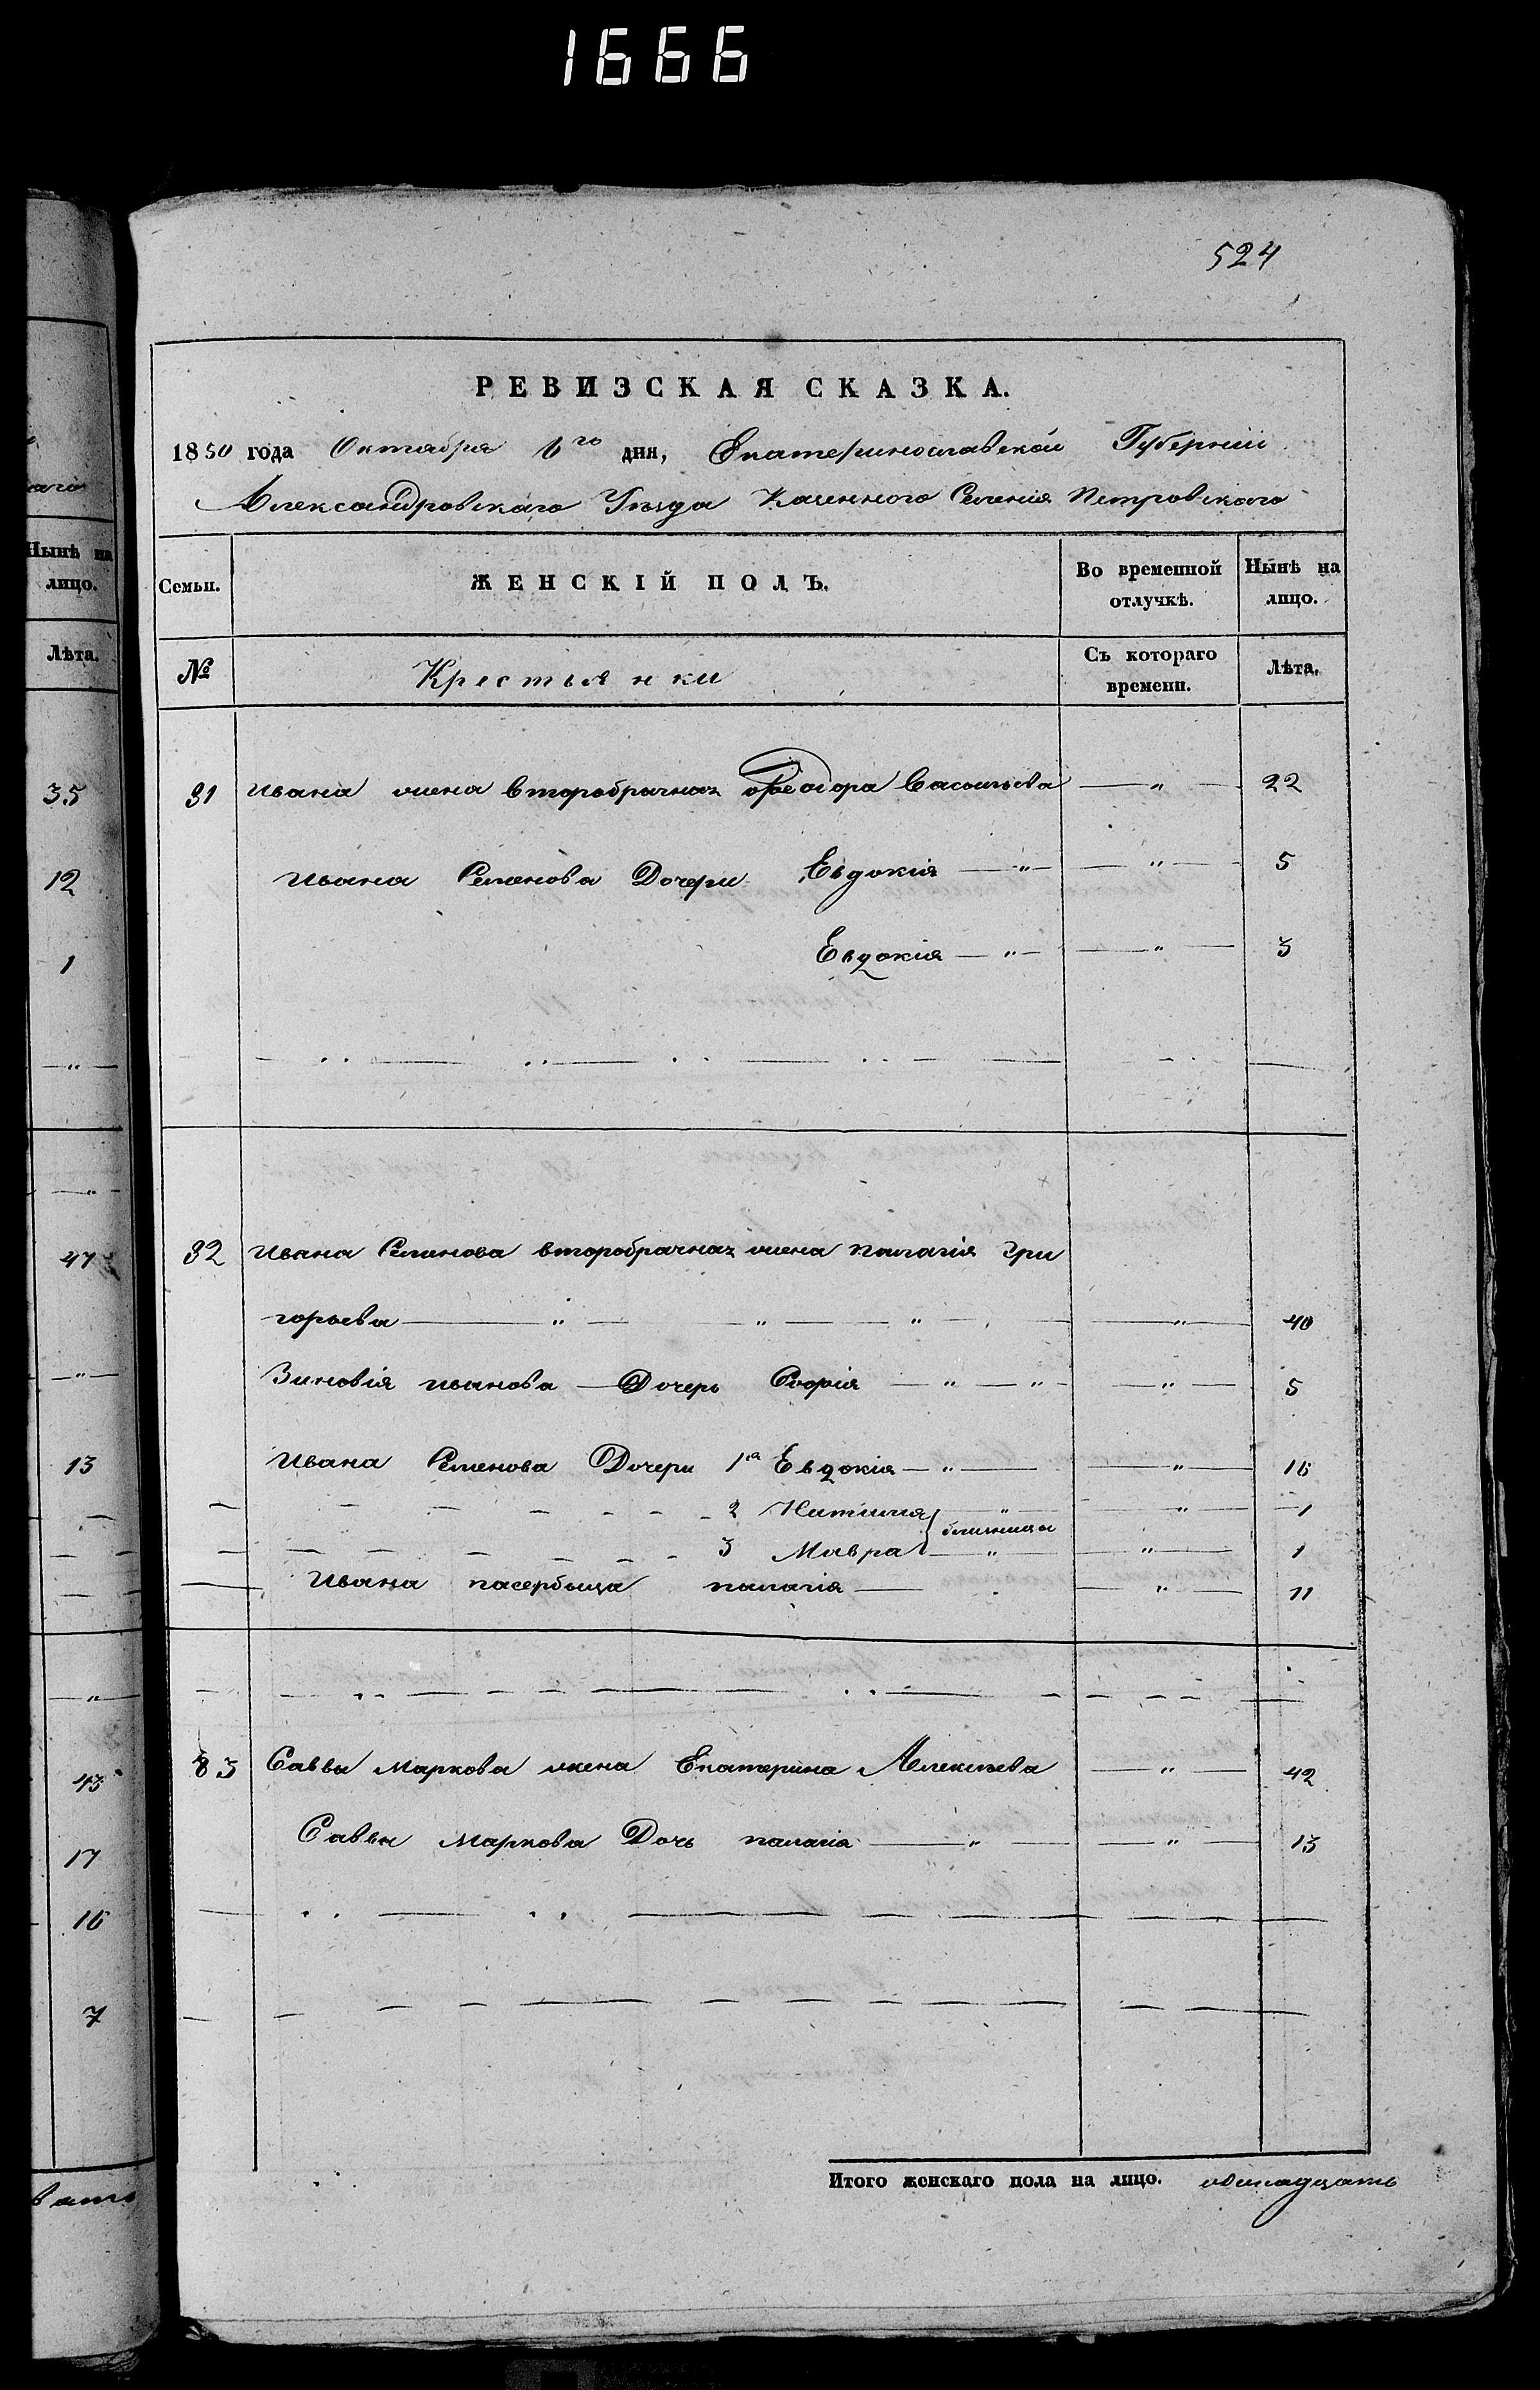 1666
524
РЕВИЗСКАЯ СКАЗКА.
1850 года Октября 6го дня, Екатеринославской Губерніи
Александровскаго Уѣзда Казенного Селенія Петровскаго
Семьи. ЖЕНСКІЙ ПОЛЪ. Во временной отлучкѣ. Нынѣ на лицо.
№ Крестьянки Съ котораго времени. Лѣта.
31 Ивана жена второбрачная Феодора Васильева — „ — 22
Ивана Семенова Дочери Евдокія — „ — — „ — 5
Евдокія — „ — — „ — 3
32 Ивана Семенова второбрачная жена палагія Гри
горьева — „ — „ — „ — — „ — 40
Зиновія иванова — Дочерь Софія — „ — „ — — „ — 5
Ивана Семенова Дочери 1а Евдокія — „ — — „ — 16
2 — „ — — „ — 1
близнецы
3 Мавра — „ — — „ — 1
Ивана пасербыца палагія — — „ — 11
33 Саввы Маркова жена Екатерина Алексѣева — „ — 42
Саввы Маркова Дочь палагія — „ — — „ — 13
Итого женскаго пола на лицо. одинадцать
аго
Нынѣ на
лицо.
Лѣта.
35
12
1
— „ —
— „ —
47
— „ —
13
— „ —
43
17
16
7